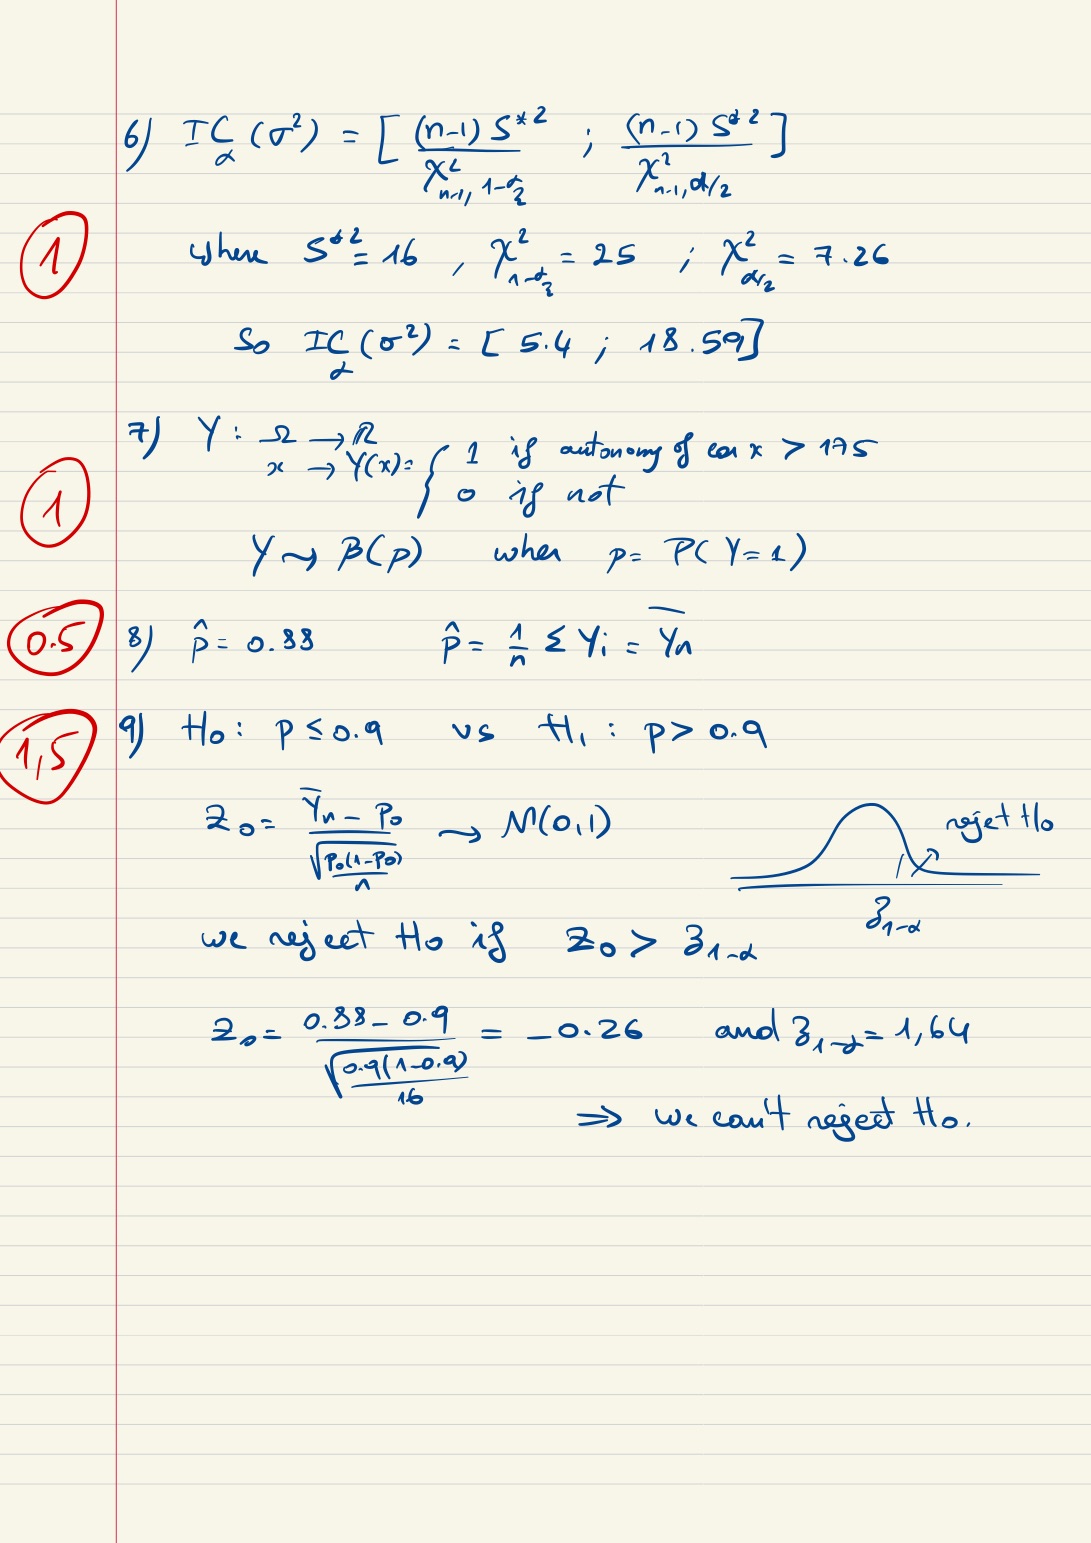 6) IC_α (σ²) = [ (n-1) S*² / χ²_{n-1, 1-α/2} ; (n-1) S*² / χ²_{n-1, α/2} ]
1
where S*² = 16 , χ²_{1-α/2} = 25 ; χ²_{α/2} = 7.26
So IC_α (σ²) = [ 5.4 ; 18.59 ]
7) Y : Ω → ℝ
x → Y(x) = { 1 if autonomy of car x > 175
0 if not
1
Y ⇝ B(p) when p = P( Y = 1 )
0.5
8) p̂ = 0.88 p̂ = 1/n Σ Yi = Ȳn
9) H0 : p ≤ 0.9 vs H1 : p > 0.9
1,5
Z0 = (Ȳn - p0) / √(p0(1-p0)/n) ⇝ N(0,1)
rejet H0
z_{1-α}
we reject H0 if Z0 > z_{1-α}
Z0 = (0.88 - 0.9) / √(0.9(1-0.9)/16) = -0.26 and z_{1-α} = 1,64
⇒ we can't reject H0.